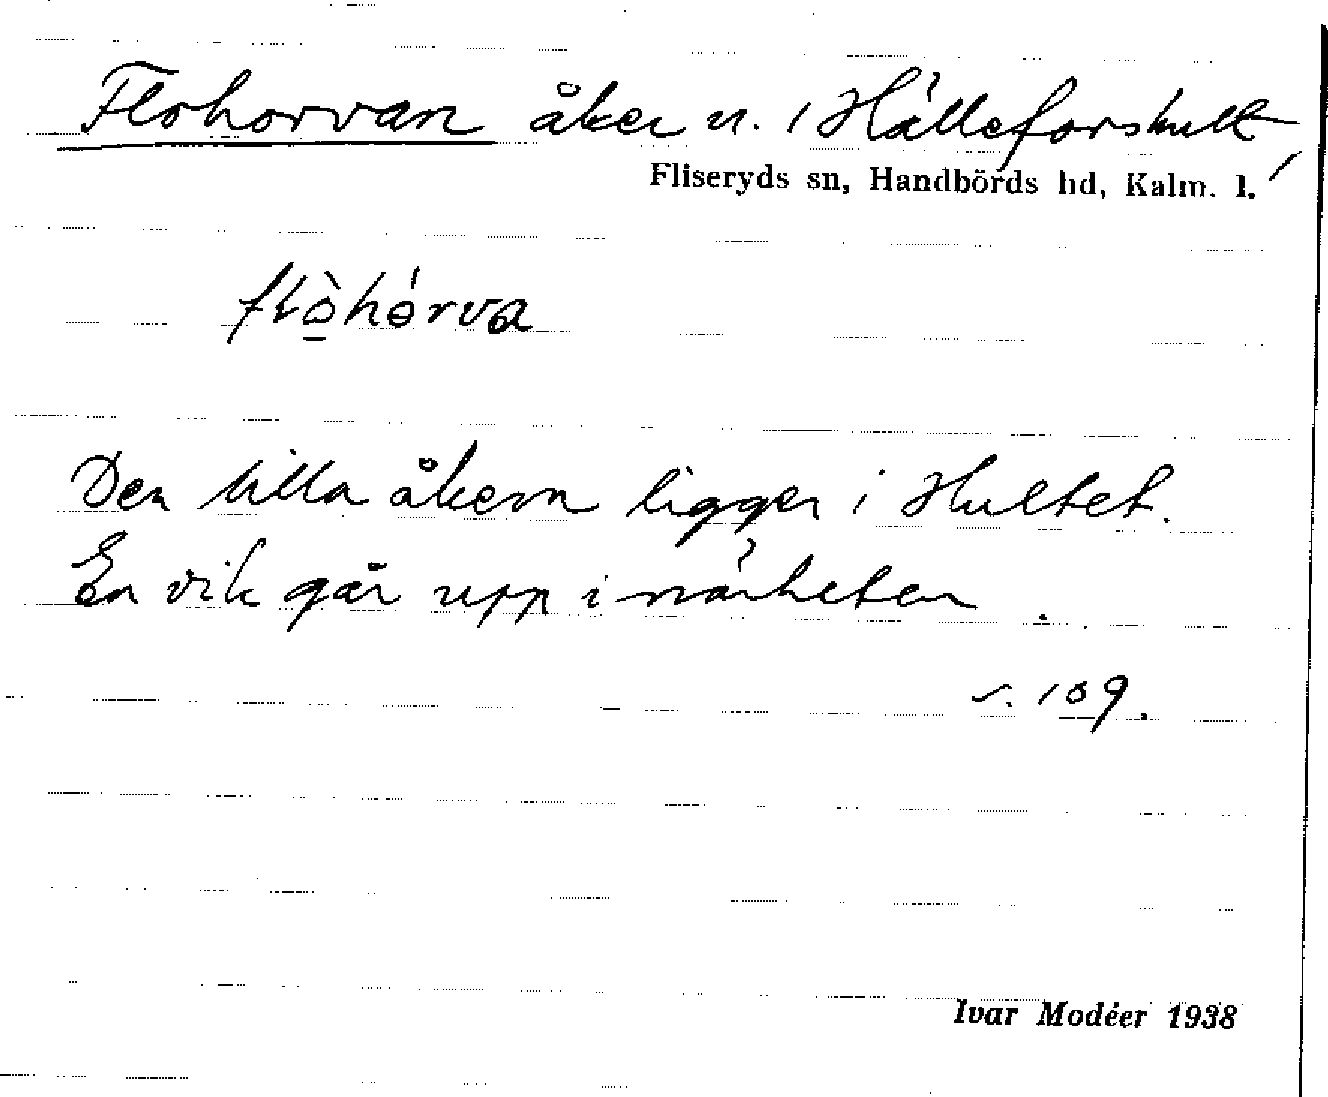 Flohorvan åker n. i Hälleforshult,
Fliseryds sn, Handbörds hd, Kalm. l.
flò̱hórva
Den lilla åkern ligger i Hultet.
En vik går upp i närheten.
s. 109.
Ivar Modéer 1938